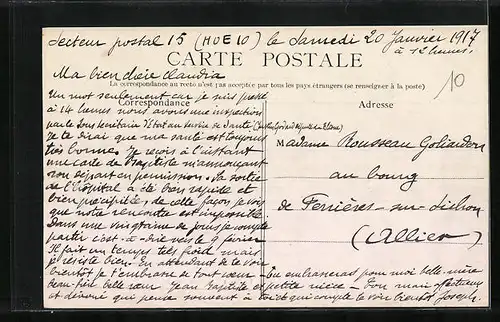 Secteur postal 15 (HOE 10) le Samedi 20 Janvier 1917
à 12 heures.
CARTE POSTALE
Ma bien chère Claudia
La correspondance au recto n'est pas acceptée par tous les pays étrangers (se renseigner à la poste)
10
Correspondance
Adresse
Un mot seulement car je suis pressé
à 14 heures nous avons une inspection
par le Sous Secrétaire d'Etat au Service de Santé
Je te dirai que ma santé est toujours
très bonne. Je reçois à l'instant
une carte de Baptiste m'annonçant
son départ en permission. Sa sortie
de l'hôpital a été très rapide et
bien précipitée, de cette façon je vois
que notre rencontre est impossible
Dans une vingtaine de jours je compte
partir c'est-à-dire vers le 9 février
Il fait un temps très froid mais
je résiste bien. En attendant de te voir
bientôt je t'embrasse de tout cœur
Tu embrasseras pour moi belle-mère
beau-frère belle sœur Jean Baptiste et petite nièce - Ton mari affectueux
et dévoué qui pense souvent à toi et qui compte te voir bientôt Joseph
Madame Rousseau
au bourg
de Ferrières-sur-Sichon
(Allier)